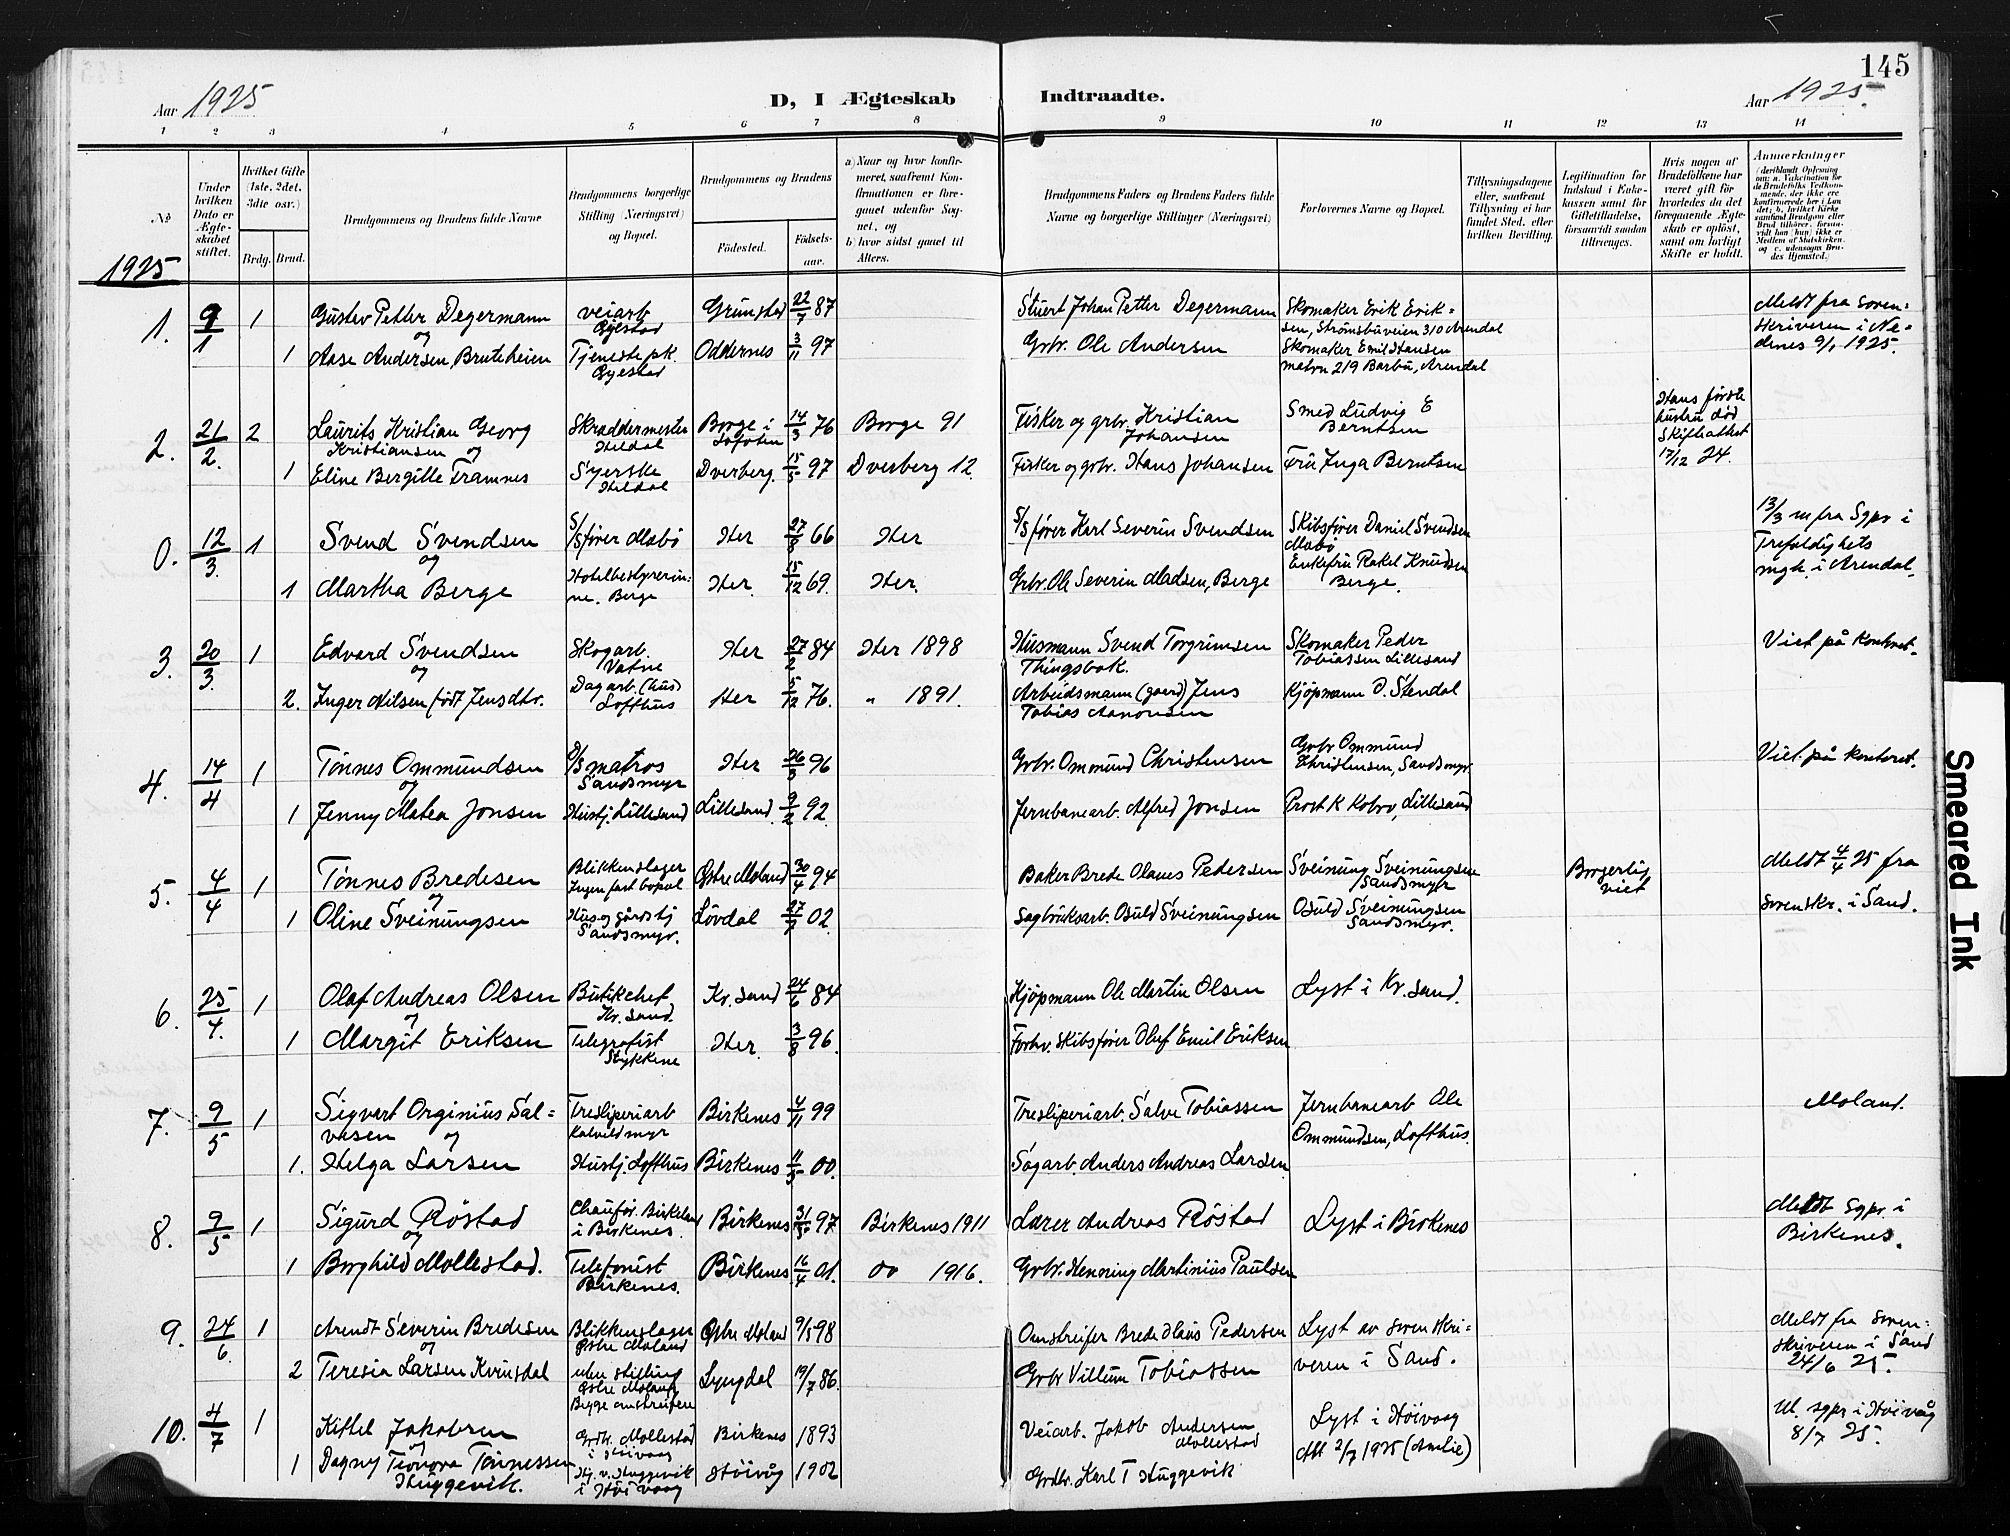 145
Aar 1925
D, I Ægteskab Indtraadte.
Aar 1925.
1 2 3 4 5 6 7 8 9 10 11 12 13 14
No
Under hvilken Dato er Ægteskabet stiftet.
Hvilket Gifte (1ste, 2det, 3die osv.)
Brdg. Brud.
Brudgommens og Brudens fulde Navne
Brudgommens borgerlige Stilling (Næringsvei) og Bopæl.
Brudgommens og Brudens
Fødested.
Fødselsaar.
a) Naar og hvor konfirmeret, saafremt Konfirmationen er foregaaet udenfor Sognet, og
b) hvor sidst gaaet til Alters.
Brudgommens Faders og Brudens Faders fulde Navne og borgerlige Stillinger (Næringsvei)
Forlovernes Navne og Bopæl.
Tillysningsdagene eller, saafremt Tillysning ei har fundet Sted, efter hvilken Bevilling.
Legitimation for Indskud i Enkekassen samt for Giftetilladelse, forsaavidt saadan tiltrænges.
Hvis nogen af Brudefolkene har været gift før, hvorledes da det foregaaende Ægteskab er opløst, samt om lovligt Skifte er holdt.
Anmærkninger
(deriblandt Oplysning om: a. Vakcination for de Brudefolks Vedkommende, der ikke ere konfirmerede her i Landet; b. hvilket Kirkesamfund Brudgom eller Brud tilhører, forsaavidt han (hun) ikke er Medlem af Statskirken, og c. udensogns Brudes Hjemsted.)
1925
1. 9/1 1 Gustav Petter Degermann veiarb Gjestad Grimstad 22/7 87 Stuert Johan Petter Degermann Skomaker Erik Eriksen, Strømsbuveien 310 Arendal Meldt fra sorenskriveren i Nedenes 9/1 1925.
og
1 Aase Andersen Bruteheien Tjenestepk. Gjestad Oddernes 3/11 97 Grbr. Ole Andersen Skomaker Emil Hansen matrn 219 Barbu, Arendal
2. 21/2. 2 Laurits Kristian Georg Kristiansen og Skraddermester Heldal Borge i Lofoten 14/3 76 Borge 91 Fisker og grbr. Kristian Johansen Smed Ludvig E Berntsen Hans første hustru død Skifteattest 17/12 24.
1 Eline Bergitte Framnes Syerske Heldal Dverberg. 15/5 97 Dverberg 12. Fisker og grbr. Hans Johansen Fru Inga Berntsen
0. 12/3. 1 Svend Svendsen S/S fører Mabø Her 27/8 66 Her S/S fører Karl Severin Svendsen Skibsfører Daniel Svendsen Mabø 13/3 m fra Sgpr i Trefoldighets mgh. i Arendal.
og
1 Martha Berge Hotelbestyrerinne. Berge Her 15/12 69. Her. Grbr. Ole Severin Madsen, Berge Enkefru Rakel Knudsen Berge.
3. 20/3. 1 Edvard Svendsen Skogarb. Vatne Her 27/2 84 Her 1898 Husmann Svend Torgrimsen Thingsbak. Skomaker Peder Tobiassen Lillesand Viet på kontoret.
og
2. Inger Nilsen født Jensdtr. Dagarb. (hus) Lofthus Her 5/12 76. " 1891. Arbeidsmann (gaard) Jens Tobias Aanonsen Kjöpmann D. Stendal
4. 14/4 1 Tønnes Ommundsen D/S matros Sandsmyr Her 26/3 96 Grbr. Ommund Christensen Grbr Ommund Christensen, Sandsmyr Viet på kontoret.
og
1 Jenny Matea Jonsen Hustj. Lillesand Lillesand 9/2 92. Jernbanearb. Alfred Jonsen Prost K Kobro, Lillesand
5. 4/4 1 Tønnes Bredesen Blikkenslager Ingen fast bopæl Østre Moland 30/4 94 Baker Brede Olaves Pedersen Sveinung Sveinungsen Sandsmyr Borgerlig viet Meldt 4/4 25 fra sorenskr. i Sand.
og
1 Oline Sveinungsen Hus og gårdstj Sandsmyr. Løvdal 27/7 02. Sagbruksarb. Osuld Sveinungsen Osuld Sveinungsen Sandsmyr.
6. 25/4. 1 Olaf Andreas Olsen Butikchef Kr. sand. Kr. sand 24/6 84 Kjøpmann Ole Martin Olsen Lyst i Kr. sand.
og
1 Margit Eriksen Telegrafist Stykkene Her. 3/8 96. Forhv. Skibsfører Oluf Emil Eriksen
7. 9/5 1 Sigvart Orginius Salvesen og Tresliperiarb Kalvildmyr Birkenes 4/11 99 Tresliperiarb. Salve Tobiassen Jernbanearb Ole Ommundsen, Lofthus. Moland.
1. Helga Larsen Hustj. Lofthus Birkenes 11/5 00. Sagarb. Anders Andreas Larsen
8. 9/5 1 Sigurd Røstad Chauffør. Birkeland i Birkenes. Birkenes 31/5 97 Birkenes 1911 Lærer Andreas Røstad Lyst i Birkenes Meldt Sgpr. i Birkenes.
og
1 Borghild Mollestad. Telefonist Birkenes. Birkenes 16/4 01. 1916. Grbr. Henning Martinius Paulsen
9. 24/6. 1 Arendt Severin Bredesen Blikkenslager Østre Moland Østre Moland 9/5 98 Omstreifer Brede Olaus Pedersen Lyst av sorenskriveren i Sand. Meldt fra sorenskriveren i Sand 24/6 25.
og
2 Teresia Larsen Kvinsdal uten stilling Østre Moland Begge omstreifere Lyngdal 19/7 86. Grbr Villum Tobiassen
10. 4/7 1 Kittel Jakobsen Grdb. Mollestad i Høivaag Birkenes 1893 Veiarb. Jakob Andersen Mollestad Lyst i Høivaag Att 2/7 1925 (Amlie) Ut. sgpr i Høivåg 8/7 25.
og
1 Dagny Teonora Tønnessen Huggevik. Hj. v. Huggevik i Høivaag Høivåg 1902 Grdbr. Karl T Huggevik
Smeared Ink